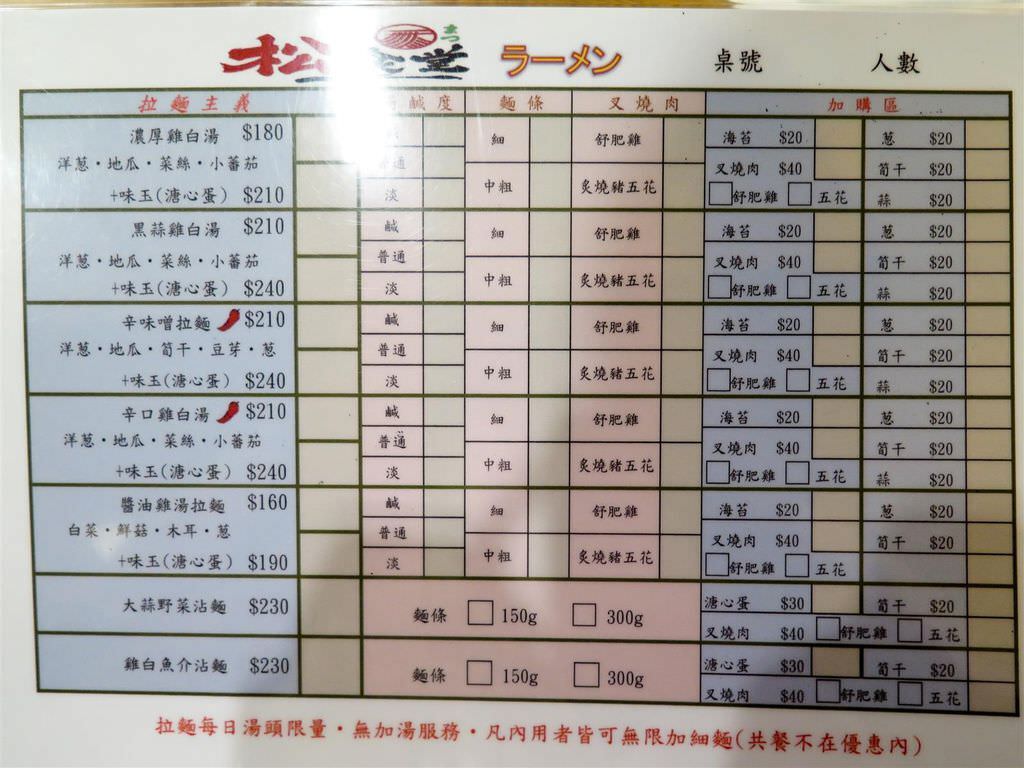 松 食堂 まつ ラーメン 桌號 人數
拉麵主義 鹹度 麵條 叉燒肉 加購區
濃厚雞白湯 $180 細 舒肥雞 海苔 $20 葱 $20
洋葱・地瓜・菜絲・小蕃茄 普通 叉燒肉 $40 筍干 $20
+味玉(溏心蛋) $210 淡 中粗 炙燒豬五花 舒肥雞 五花 蒜 $20
黑蒜雞白湯 $210 鹹 細 舒肥雞 海苔 $20 葱 $20
洋葱・地瓜・菜絲・小蕃茄 普通 叉燒肉 $40 筍干 $20
+味玉(溏心蛋) $240 淡 中粗 炙燒豬五花 舒肥雞 五花 蒜 $20
辛味噌拉麵 $210 鹹 細 舒肥雞 海苔 $20 葱 $20
洋葱・地瓜・筍干・豆芽・葱 普通 叉燒肉 $40 筍干 $20
+味玉(溏心蛋) $240 淡 中粗 炙燒豬五花 舒肥雞 五花 蒜 $20
辛口雞白湯 $210 鹹 細 舒肥雞 海苔 $20 葱 $20
洋葱・地瓜・菜絲・小蕃茄 普通 叉燒肉 $40 筍干 $20
+味玉(溏心蛋) $240 淡 中粗 炙燒豬五花 舒肥雞 五花 蒜 $20
醬油雞湯拉麵 $160 鹹 細 舒肥雞 海苔 $20 葱 $20
白菜・鮮菇・木耳・葱 普通 叉燒肉 $40 筍干 $20
+味玉(溏心蛋) $190 淡 中粗 炙燒豬五花 舒肥雞 五花
大蒜野菜沾麵 $230 麵條 150g 300g 溏心蛋 $30 筍干 $20
叉燒肉 $40 舒肥雞 五花
雞白魚介沾麵 $230 麵條 150g 300g 溏心蛋 $30 筍干 $20
叉燒肉 $40 舒肥雞 五花
拉麵每日湯頭限量・無加湯服務・凡內用者皆可無限加細麵(共餐不在優惠內)